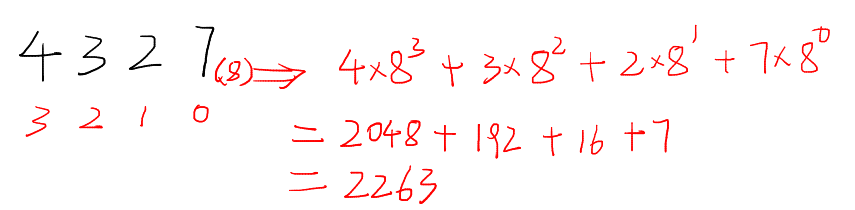 4 3 2 7(8) ⇒ 4×8³ + 3×8² + 2×8¹ + 7×8⁰
3 2 1 0
= 2048 + 192 + 16 + 7
= 2263